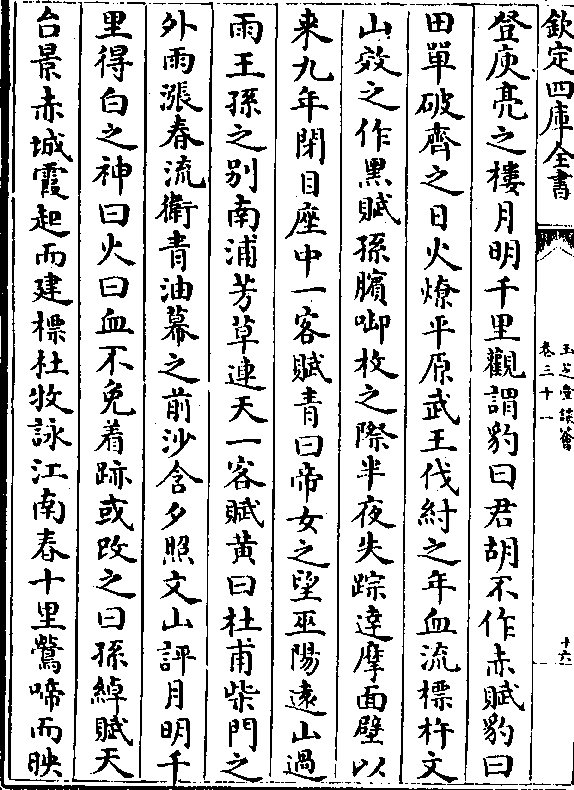 欽定四庫全書
玉芝堂談薈
卷三十一
十六
登庾亮之樓月明千里觀謂豹曰君胡不作赤賦豹曰
田單破齊之日火燎平原武王伐紂之年血流標杵文
山效之作黑賦孫臏啣枚之際半夜失踪達摩面壁以
来九年閉目座中一客賦青曰帝女之望巫陽遠山過
雨王孫之别南浦芳草連天一客賦黄曰杜甫柴門之
外雨漲春流衛青油幕之前沙含夕照文山評月明千
里得白之神曰火曰血不免着跡或改之曰孫綽賦天
台景赤城霞起而建標杜牧詠江南春十里鶯啼而映